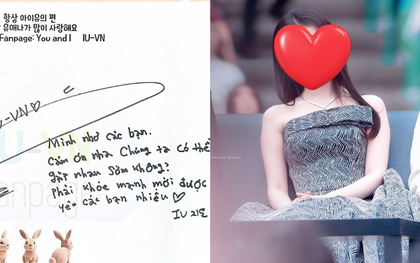 항상 아이유의 편
유애나가 많이 사랑해요
Fanpage: You and I IU-VN
-VN♡
Mình nhớ các bạn.
Cảm ơn nha Chúng ta có thể
gặp nhau sớm không?
Phải khỏe mạnh mới được
yêu các bạn nhiều ♡
IU